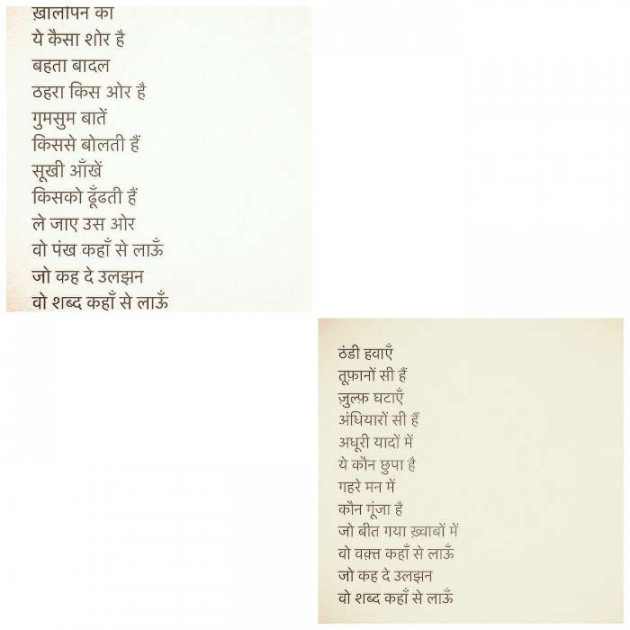 ख़ालीपन का
ये कैसा शोर है
बहता बादल
ठहरा किस ओर है
गुमसुम बातें
किससे बोलती हैं
सूखी आँखें
किसको ढूँढती हैं
ले जाए उस ओर
वो पंख कहाँ से लाऊँ
जो कह दे उलझन
वो शब्द कहाँ से लाऊँ
ठंडी हवाएँ
तूफ़ानों सी हैं
ज़ुल्फ़ घटाएँ
अंधियारों सी हैं
अधूरी यादों में
ये कौन छुपा है
गहरे मन में
कौन गूंजा है
जो बीत गया ख़्वाबों में
वो वक़्त कहाँ से लाऊँ
जो कह दे उलझन
वो शब्द कहाँ से लाऊँ